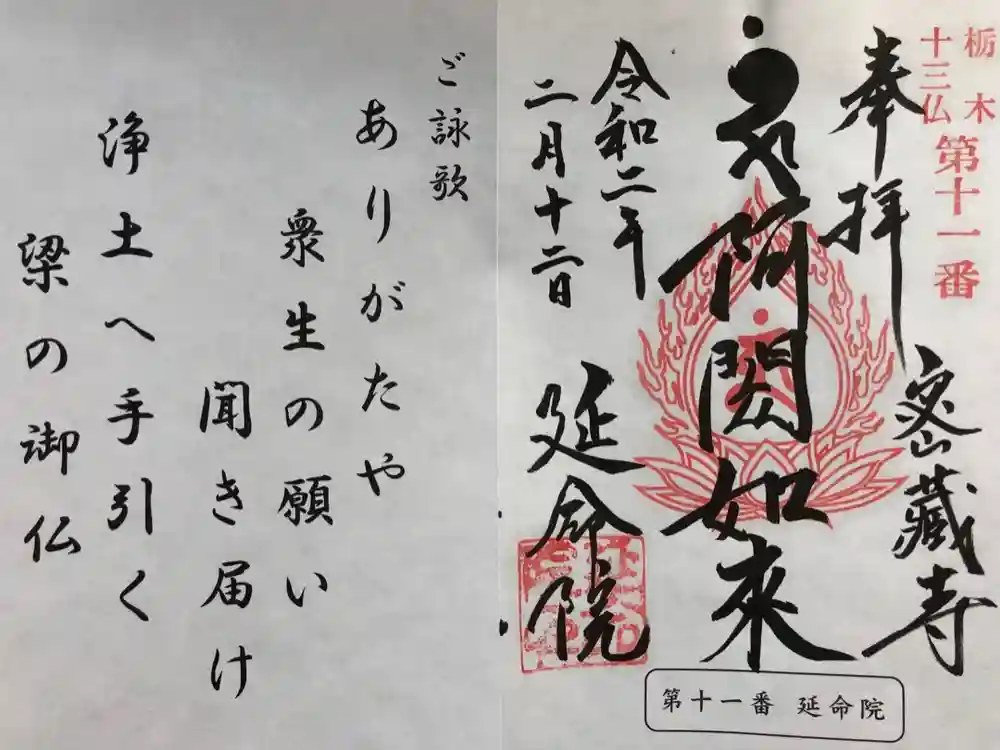 栃木
十三仏
第十一番
奉拝
密藏寺
阿閦如来
令和二年
二月十二日
延命院
第十一番 延命院
ご詠歌
ありがたや
衆生の願い
聞き届け
浄土へ手引く
梁の御仏